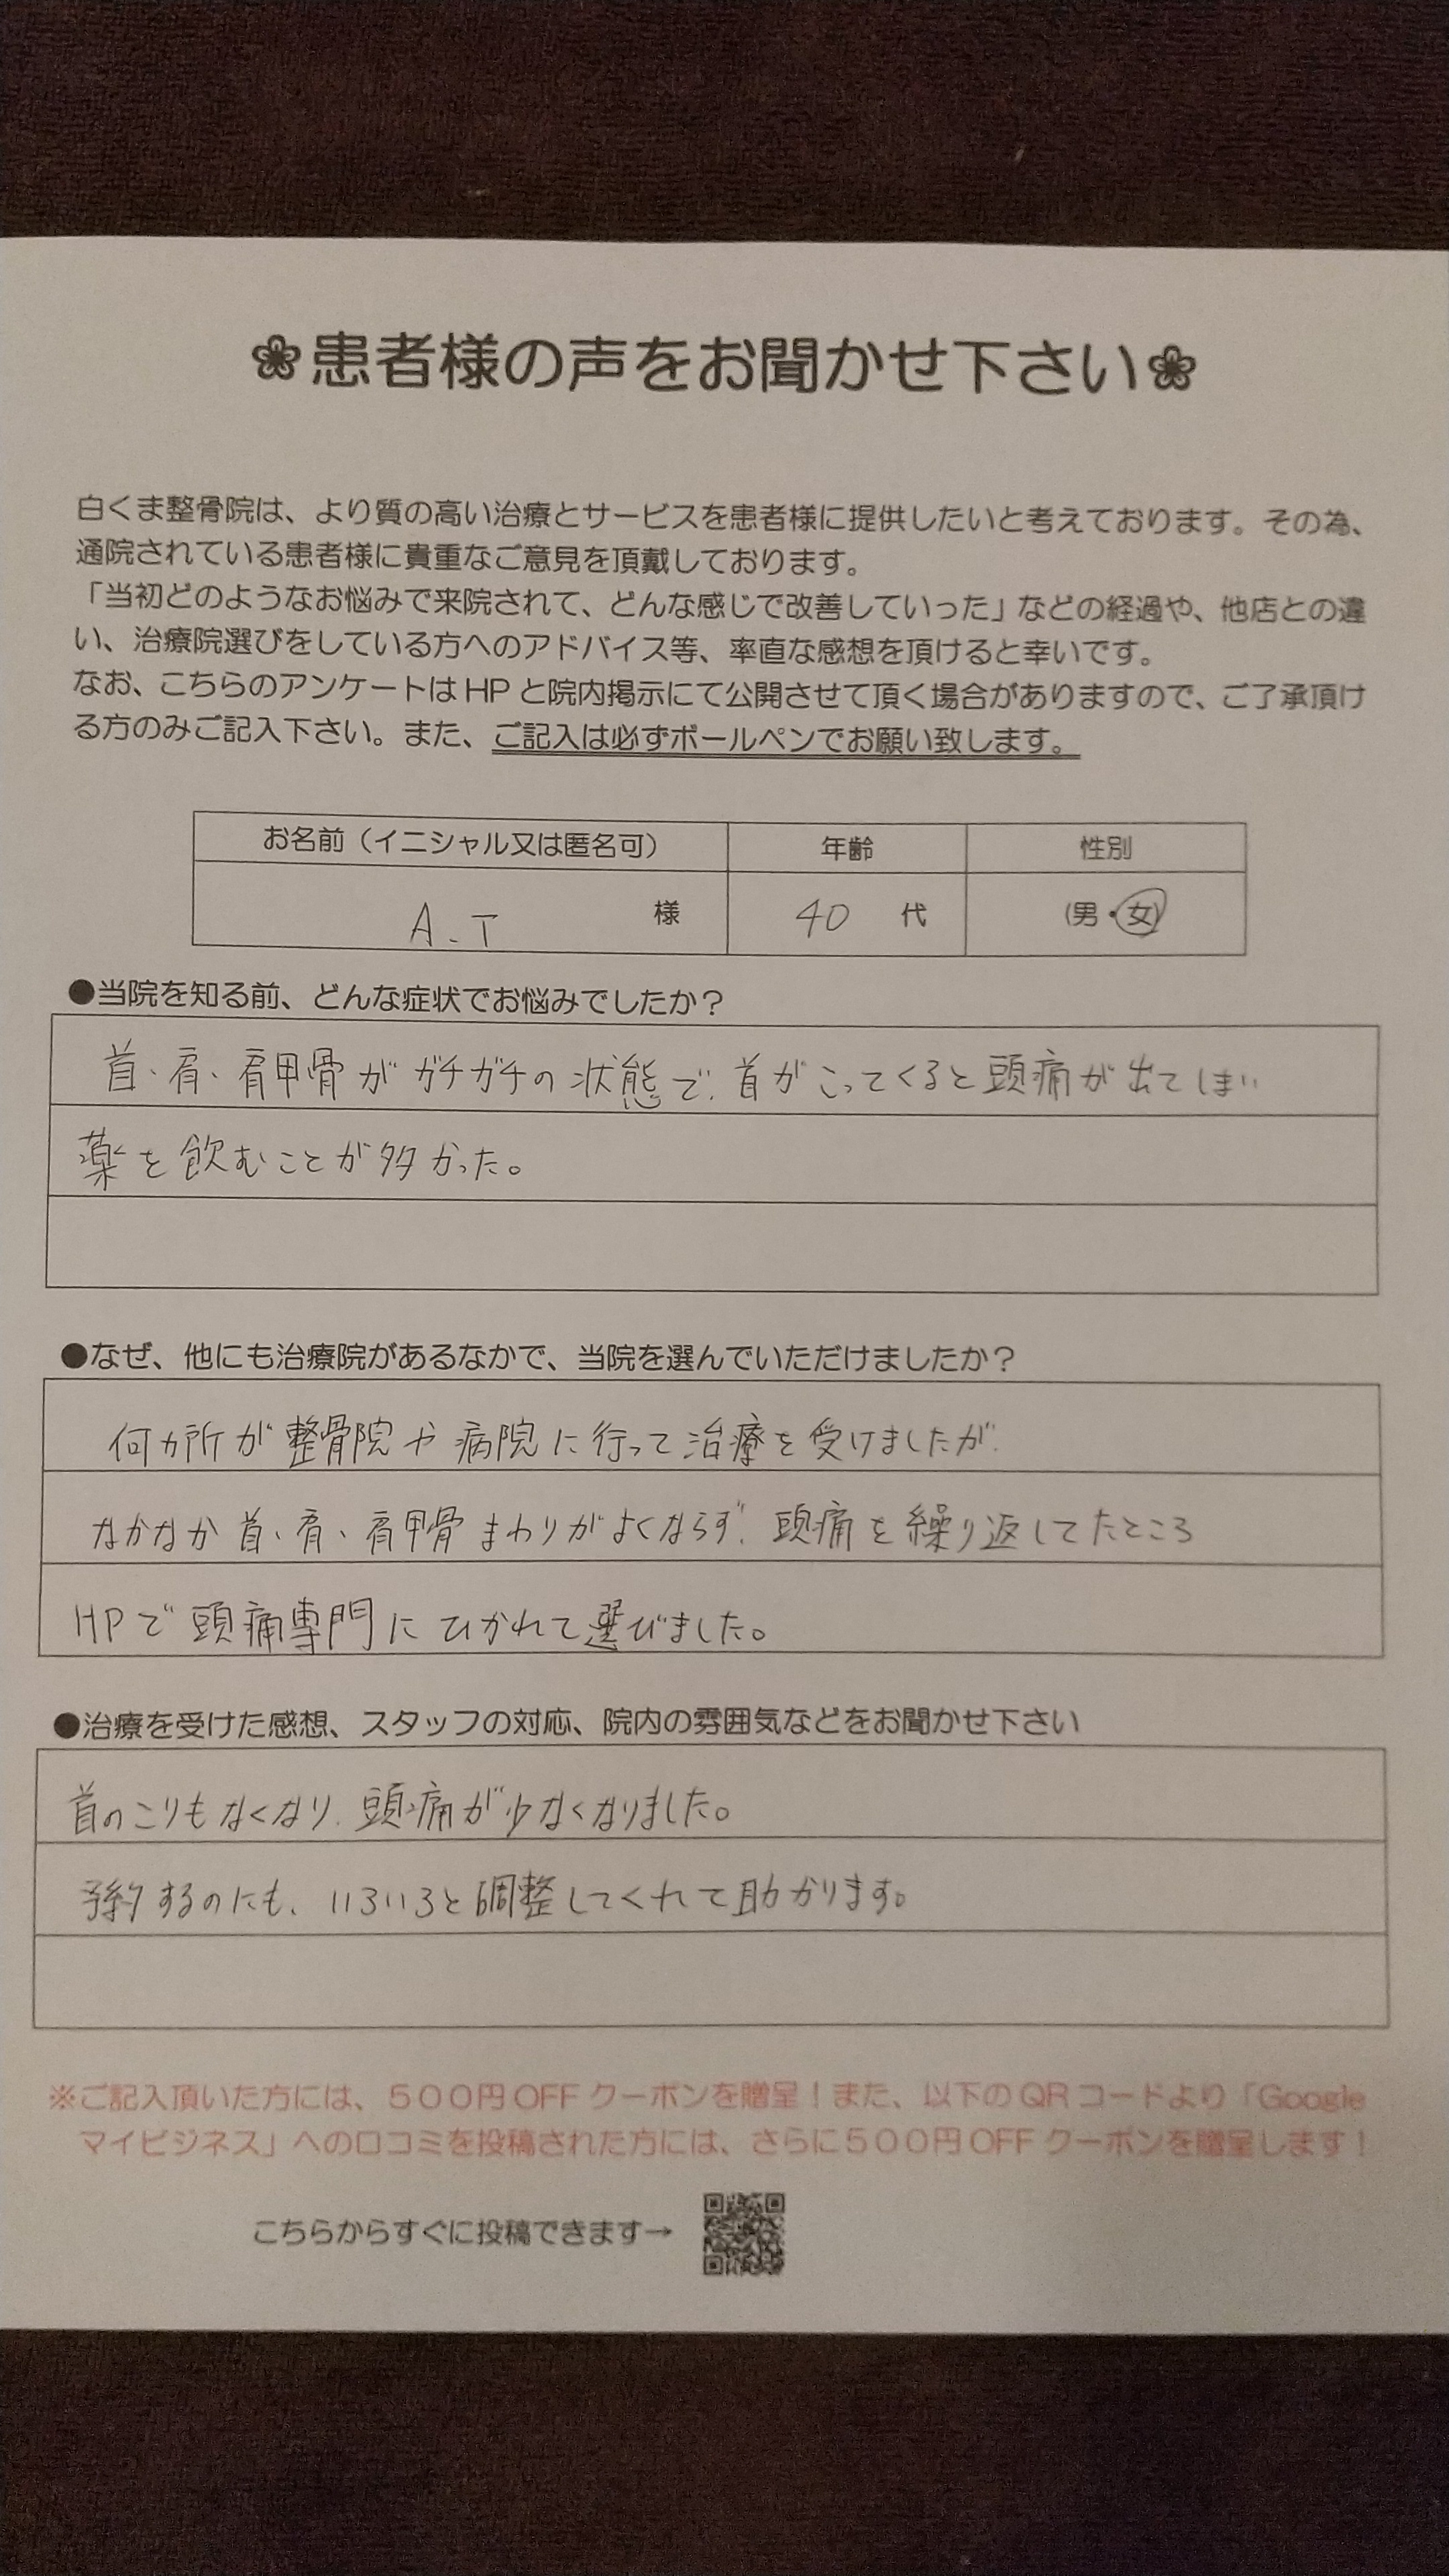 ❀患者様の声をお聞かせ下さい❀
白くま整骨院は、より質の高い治療とサービスを患者様に提供したいと考えております。その為、
通院されている患者様に貴重なご意見を頂戴しております。
「当初どのようなお悩みで来院されて、どんな感じで改善していった」などの経過や、他店との違
い、治療院選びをしている方へのアドバイス等、率直な感想を頂けると幸いです。
なお、こちらのアンケートはHPと院内掲示にて公開させて頂く場合がありますので、ご了承頂け
る方のみご記入下さい。また、ご記入は必ずボールペンでお願い致します。
お名前（イニシャル又は匿名可） 年齢 性別
A.T 様 40 代 (男・女)
●当院を知る前、どんな症状でお悩みでしたか？
首、肩、肩甲骨がガチガチの状態で、首がこってくると頭痛が出てしまい
薬を飲むことが多かった。
●なぜ、他にも治療院があるなかで、当院を選んでいただけましたか？
何カ所が整骨院や病院に行って治療を受けましたが、
なかなか首、肩、肩甲骨まわりがよくならず、頭痛を繰り返してたところ
HPで頭痛専門にひかれて選びました。
●治療を受けた感想、スタッフの対応、院内の雰囲気などをお聞かせ下さい
首のこりもなくなり、頭痛が少なくなりました。
予約するのにも、いろいろと調整してくれて助かります。
※ご記入頂いた方には、５００円OFFクーポンを贈呈！また、以下のQRコードより「Google
マイビジネス」への口コミを投稿された方には、さらに５００円OFFクーポンを贈呈します！
こちらからすぐに投稿できます→